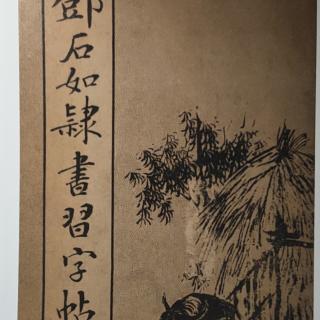 鄧石如隸書習字帖